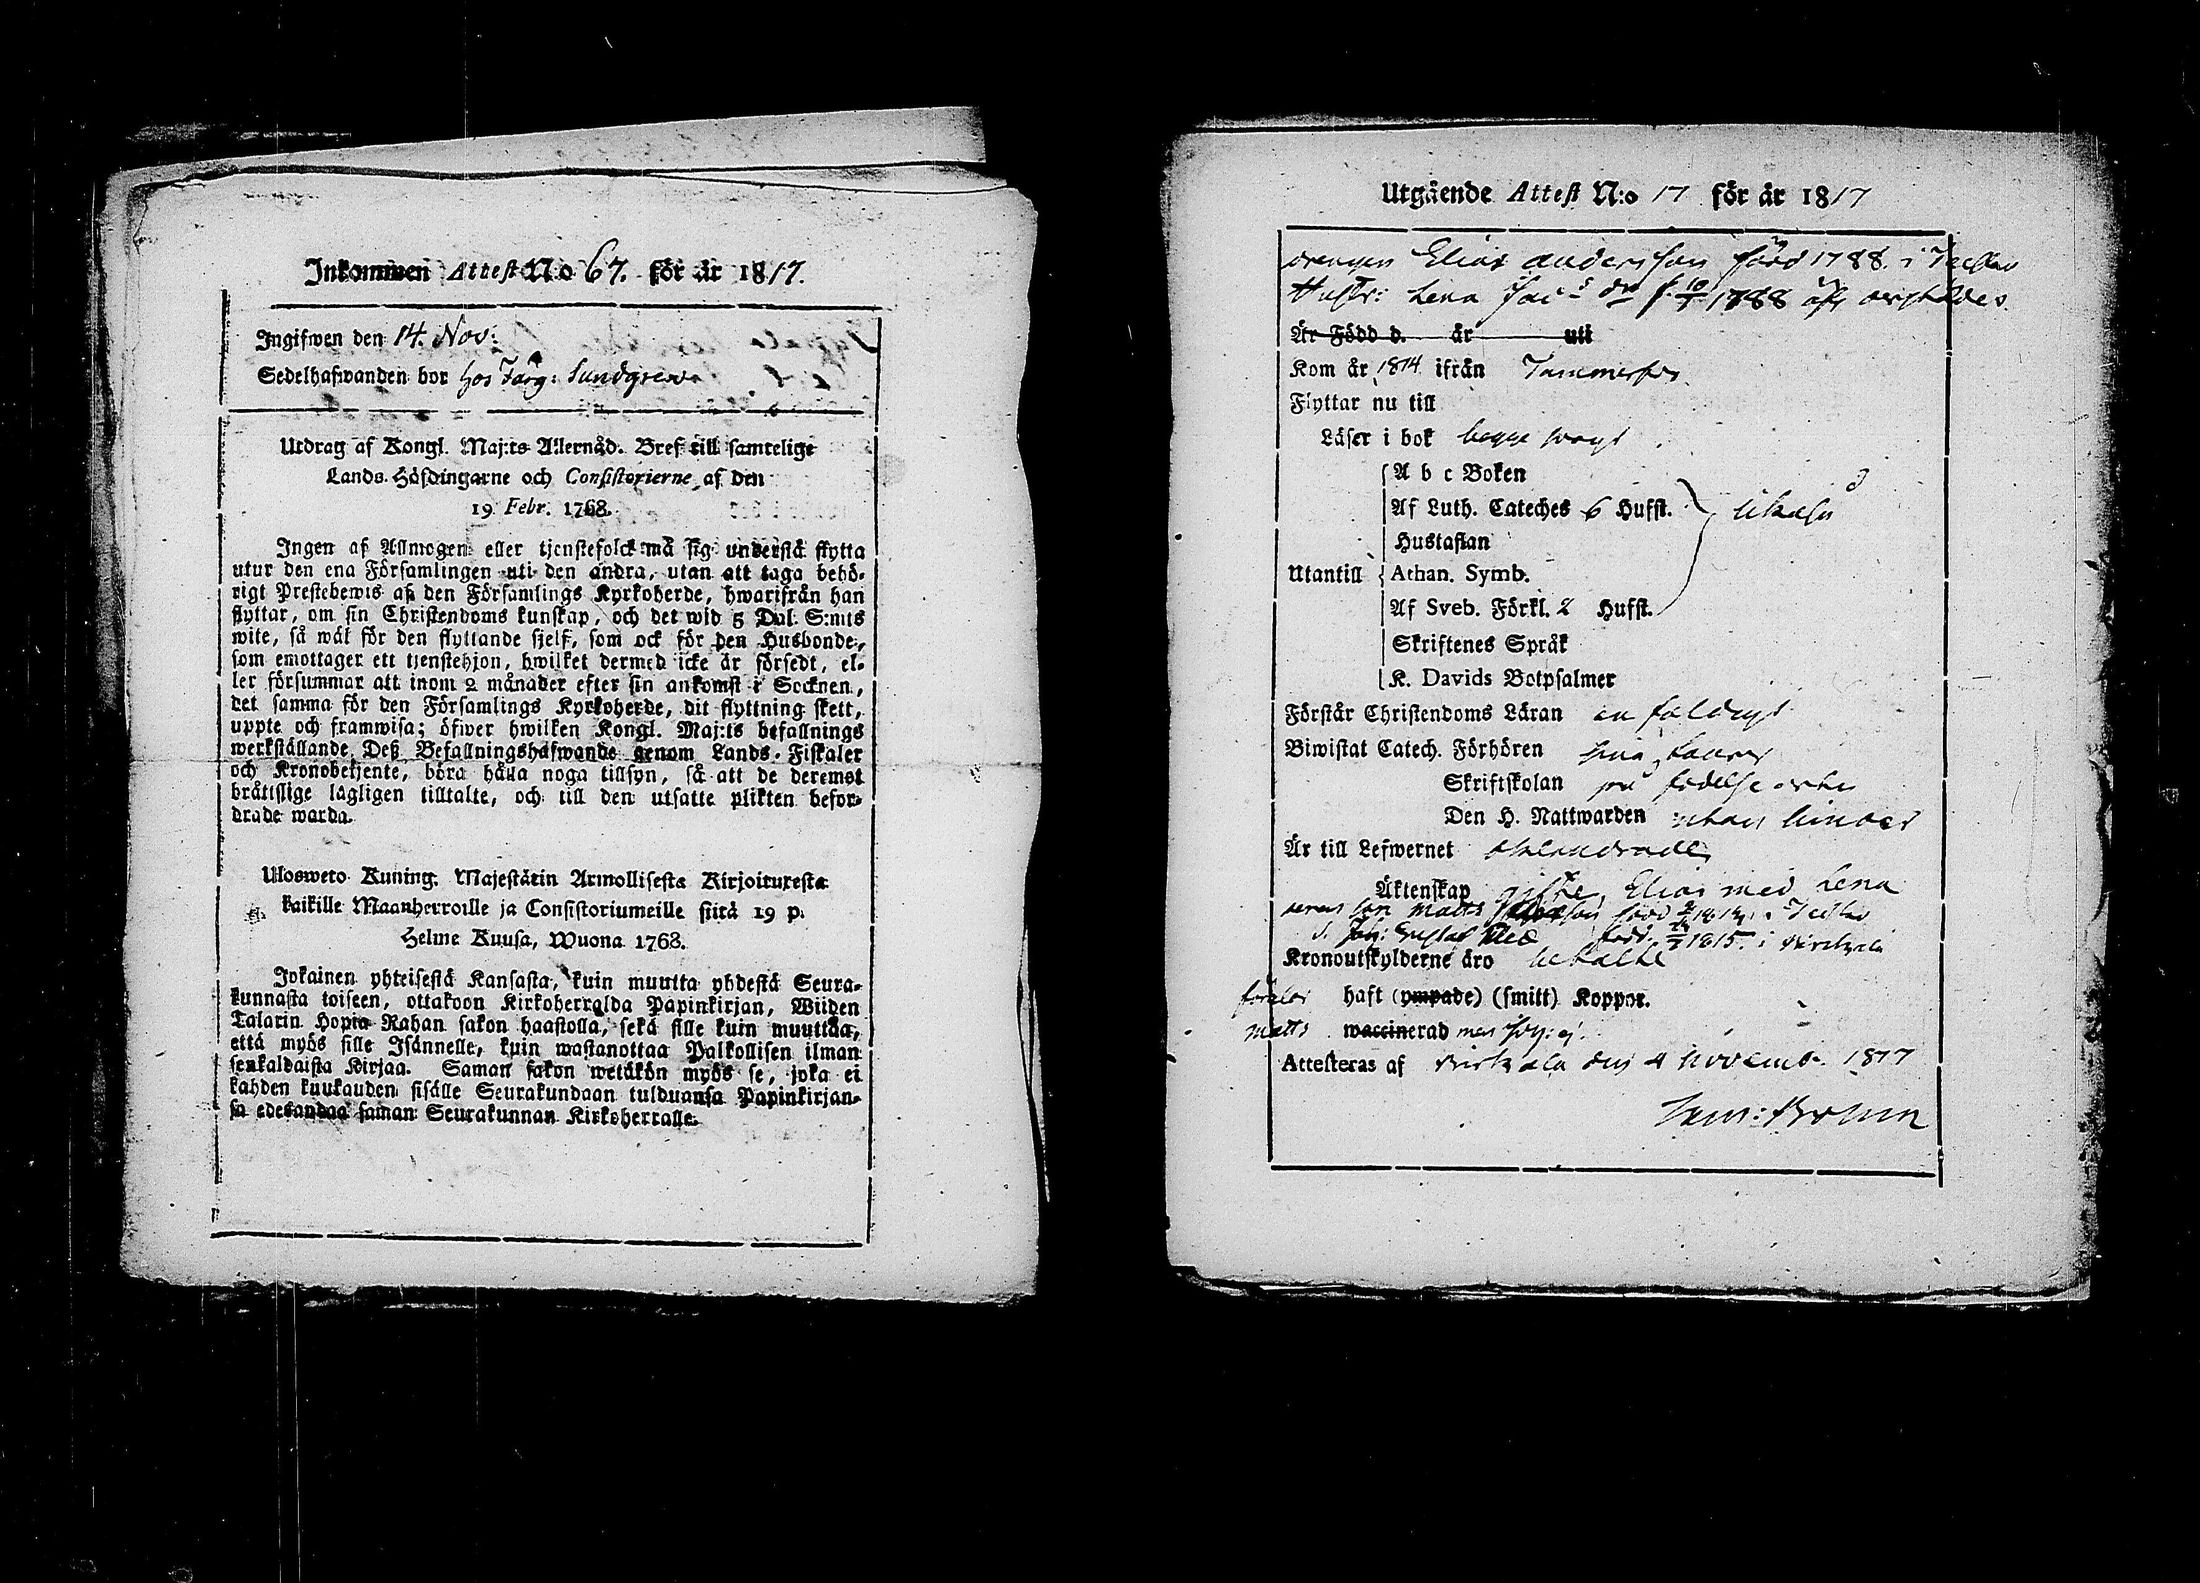 Inkommen Attest N:o 67. för år 1817.
Ingifwen den 14. Nov:
Sedelhafwanden bor hos Färg: Sundgren
Utdrag af Kongl. Maj:ts Allernåd. Bref till samtelige
Lands-Höfdingarne och Consistorierne, af den
19 Febr. 1768.
Ingen af Allmogen eller tjenstefolck må sig understå flytta
utur den ena Församlingen uti den andra, utan att taga behö-
rigt Prestebewis af den Församlings Kyrkoherde, hwarifrån han
flyttar, om sin Christendoms kunskap, och det wid 5 Dal. S:mts
wite, så wäl för den flyttande sjelf, som ock för den Husbonde,
som emottager ett tjenstehjon, hwilket dermed icke är försedt, el-
ler försummar att inom 2 månader efter sin ankomst i Socknen,
det samma för den Församlings Kyrkoherde, dit flyttning skett,
uppte och framwisa; öfwer hwilken Kongl. Maj:ts befallnings
werkställande Deß Befallningshafwande genom Lands-Fiskaler
och Kronobetjente, böra hålla noga tillsyn, så att de deremot
bråttslige lagligen tilltalte, och till den utsatte plikten befor-
drade warda.
Ulosweto Kuning. Majestätin Armollisesta Kirjoituxesta
kaikille Maanherroille ja Consistoriumeille siitä 19 p.
Helme Kuusa, Wuona 1768.
Jokainen yhteisestä Kansasta, kuin muutta yhdestä Seura-
kunnasta toiseen, ottakoon Kirkoherralda Papinkirjan, Wiiden
Talarin Hopia Rahan sakon haastolla, sekä sille kuin muuttaa,
että myös sille Isännelle, kuin wastanottaa Palkollisen ilman
senkaldaista Kirjaa. Saman sakon wetäkön myös se, joka ei
kahden kuukauden sisälle Seurakundaan tulduansa Papinkirjan-
sa edesandaa saman Seurakunnan Kirkoherralle.
Utgående Attest N:o 17 för år 1817
drengen Elias andersson född 1788. i
Hustr: Lena Jac:s dr f. 10/1 1788
Är Född d. år uti
Kom år 1814 ifrån Tammerfors
Flyttar nu till
Läser i bok begge swagt
A b c Boken
Af Luth. Cateches 6 Hufst. likaså
Hustaflan
Utantill Athan. Symb.
Af Sveb. Förkl. 2 Hufst.
Skriftenes Språk
K. Davids Botpsalmer
Förstår Christendoms Läran enfaldigt
Biwistat Catech. Förhören
Skriftskolan på födelse orten
Den H. Nattwarden utan hinder
Är till Lefwernet oklandrade
Äktenskap gifte, Elias med Lena
deras son Matts född
född 1815. i Birckala
Kronoutskylderne äro betalte
haft (ympade) (smitt) Koppor.
Matts waccinerad men ej.
Attesteras af Birkala den 4 Novemb. 1817